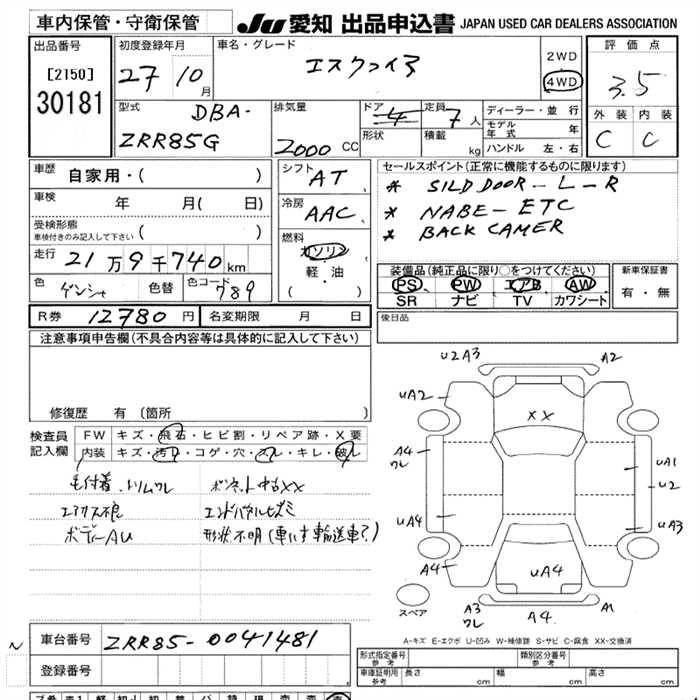 車内保管・守衛保管
JU 愛知 出品申込書 JAPAN USED CAR DEALERS ASSOCIATION
出品番号
[2150]
30181
初度登録年月
27 10月
車名・グレード
エスクァイア
2WD
4WD
評価点
3.5
外装 内装
C C
型式 DBA-
ZRR85G
排気量
2000 CC
ドア 4
形状
定員 7人
積載 kg
ディーラー・並行
モデル年式 年
ハンドル 左・右
車歴 自家用・( )
車検 年 月( 日)
受検形態
車検付きのみ記入して下さい ( )
走行 21万9千740km
色 ゲンシャ 色替 色コード 789
シフト AT
冷房 AAC
燃料
ガソリン
軽・油
( )
セールスポイント(正常に機能するものに限ります)
* SILD DOOR - L - R
* NABE - ETC
* BACK CAMER
装備品(純正品に限り○をつけてください)
PS PW エアB AW
SR ナビ TV カワシート
新車保証書
有・無
R券 12780円 名変期限 月 日
後日品
注意事項申告欄(不具合内容等は具体的に記入して下さい)
修復歴 有(箇所
検査員
記入欄
FW キズ・飛石・ヒビ割・リペア跡・X要
内装 キズ・汚れ・コゲ・穴・スレ・キレ・破レ
毛付着、トリムワレ ボンネット中古XX
エアクス不良 エンドパネルヒズミ
ボディーAU 形状不明(車いす輸送車?)
U2A3
A2
UA2
XX
A4
ワレ
UA1
U2
UA4
UA3
A4
UA4
スペア
A3
ワレ
A4
A1
A-キズ E-エクボ U-凹み W-補修跡 S-サビ C-腐食 XX-交換済
車台番号 ZRR85-0041481
登録番号
形式指定番号
参考
類別区分番号
参考
車庫証明用
参考
長さ cm 幅 cm 高さ cm